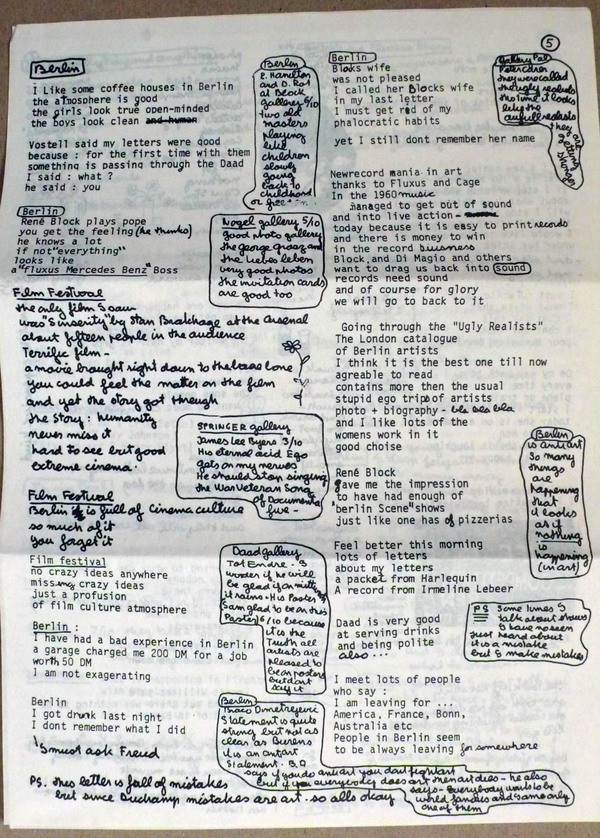 5
Berlin
I Like some coffee houses in Berlin
the atmosphere is good
the girls look true open-minded
the boys look clean and human
Vostell said my letters were good
because : for the first time with them
something is passing through the Daad
I said : what ?
he said : you
Berlin
René Block plays pope
you get the feeling (he thinks)
he knows a lot
if not "everything"
looks like
a "fluxus Mercedes Benz" Boss
Film Festival
the only film I saw
was "Sinserity" by Stan Brakhage at the Arsenal
about fifteen people in the audience
Terrific film -
a movie braught right down to the bare bone
you could feel the matter on the film
and yet the story got through
the Story : humanity
never miss it
hard to see but good
extreme cinema.
Film Festival
Berlin is full of Cinema culture
so much of it
you forget it
Film festival
no crazy ideas anywhere
missing crazy ideas
just a profusion
of film culture atmosphere
Berlin :
I have had a bad experience in Berlin
a garage charged me 200 DM for a job
worth 50 DM
I am not exagerating
Berlin
I got drunk last night
I dont remember what I did
I must ask Freud
Berlin
R. Hamilton
and D. Rot
at Block
gallery 5/10
two old
masters
playing
like
children
slowly
going
back to
childhood
or
Nagel gallery 5/10
good photo gallery
the george grosz and
the Liebes leben
very good photos
the invitation cards
are good too
SPRINGER gallery
James Lee Byars 3/10
His eternal acid Ego
gets on my nerves
He should stop singing
the War Veteran Song
of Documenta
five -
Daad gallery
Tot Endre. I
wonder if he will
be glad if on
it rains - His Poster
I am glad to be on this
Poster 6/10 because
it is the
Truth all
artists are
pleased to
be on posters
but dont
say it
Berlin
Braco Dimetrejevic
Statement is quite
strong but not as
clear as Burens
it is an antart
Statement - B.D
says if you do anti art you dont fight art
but if you everybody does art then art dies - he also
says - everybody wants to be
world famous and same only
one of them
Berlin
Blocks wife
was not pleased
I called her Blocks wife
in my last letter
I must get rid of my
phalocratic habits
yet I still dont remember her name
Newrecord mania in art
thanks to Fluxus and Cage
In the 1960 music
managed to get out of sound
and into live action -
today because it is easy to print records
and there is money to win
in the record buisness
Block, and Di Magio and others
want to drag us back into sound
records need sound
and of course for glory
we will go back to it
Going through the "Ugly Realists"
The London catalogue
of Berlin artists
I think it is the best one till now
agreable to read
contains more then the usual
stupid ego trips of artists
photo + biography - bla bla bla
and I like lots of the
womens work in it
good choise
René Block
gave me the impression
to have had enough of
"berlin Scene" shows
just like one has of pizzerias
Feel better this morning
lots of letters
about my letters
a packet from Harlequin
A record from Irmeline Lebeer
Daad is very good
at serving drinks
and being polite
also ...
I meet lots of people
who say :
I am leaving for ...
America, France, Bonn,
Australia etc
People in Berlin seem
to be always leaving for somewhere
Gallery Pall
Peter
they were called
the ugly realists
this time it looks
like the
awfull realists
they are
getting
stronger
Berlin
is anti art
So many
things
are
happening
that
it looks
as if
nothing
is
happening
(in art)
PS Some times I
talk about shows
I have not seen
just heard about
it is a mistake
but I make mistakes
PS. this letter is full of mistakes
but since Duchamp mistakes are art. so alls okay